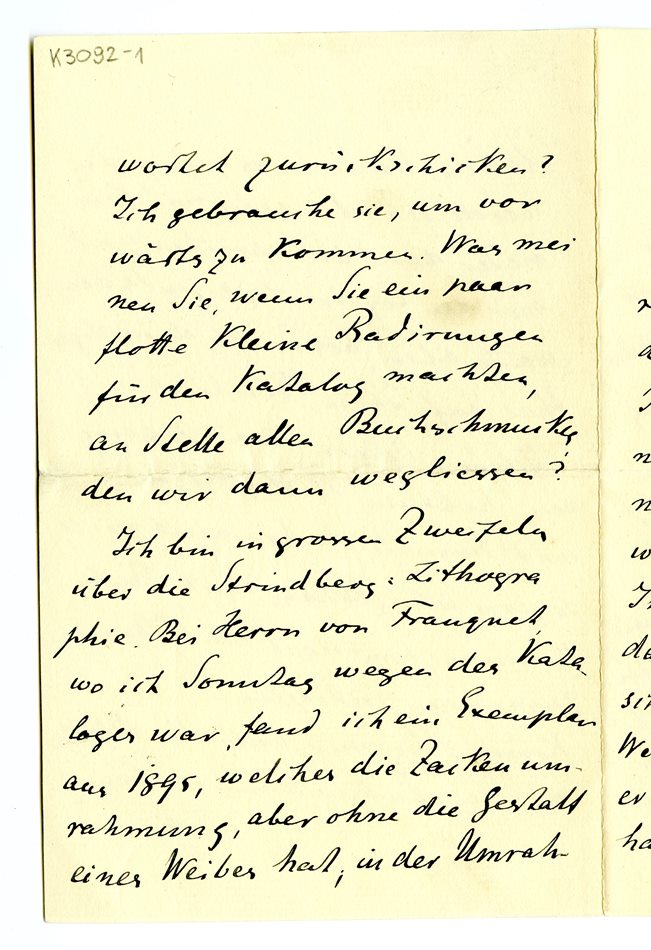 K3092-1
wortet zurückschicken?
Ich gebrauche sie, um vor
wärts zu kommen. Was mei
nen Sie, wenn Sie ein paar
flotte kleine Radirungen
für den Katalog machten,
an Stelle allen Buchschmuckes,
den wir dann wegliessen?
Ich bin in grossen Zweifeln
über die Strindberg=Lithogra
phie. Bei Herrn von Franquet,
wo ich Sonntag wegen des Kata-
loges war, fand ich ein Exemplar
aus 1895, welches die Zackenum-
rahmung, aber ohne die Gestalt
eines Weibes hat; in der Umrah-